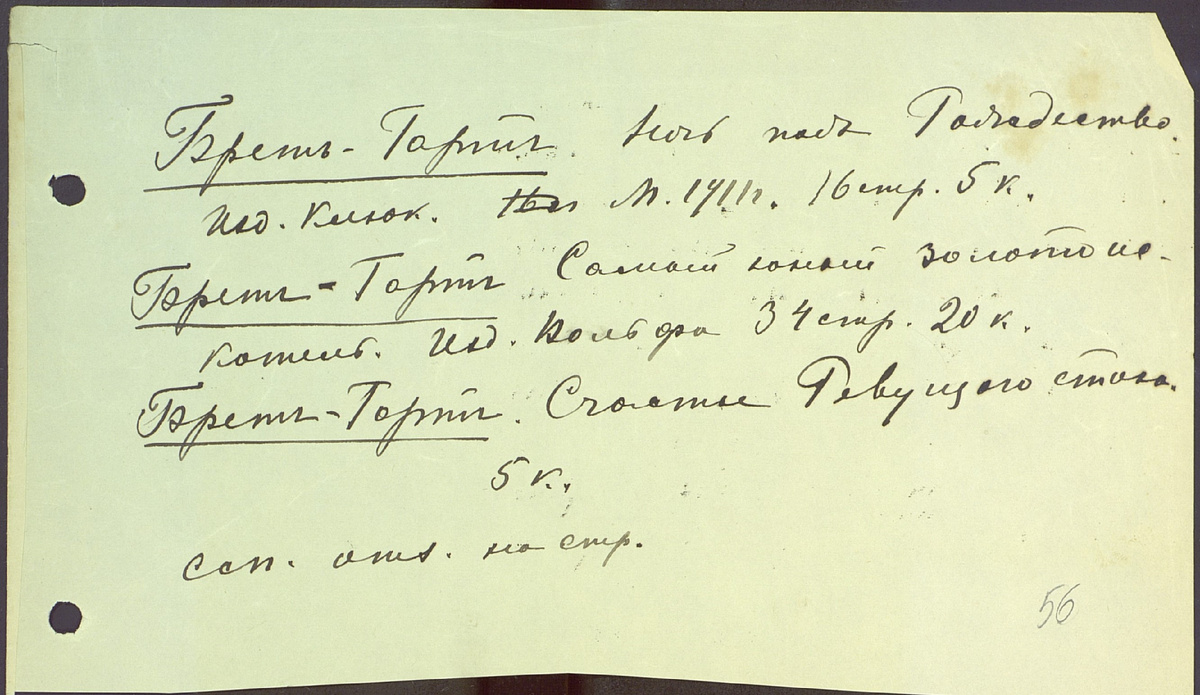 Бретъ-Гартъ. Ночь подъ Рождество.
Изд. Клюк. М. 1911 г. 16 стр. 5 к.
Бретъ-Гартъ Самый юный золотоис-
катель. Изд. Вольфа 34 стр. 20 к.
Бретъ-Гартъ. Счастье Ревущего стана.
5 к.
отз. на стр.
56